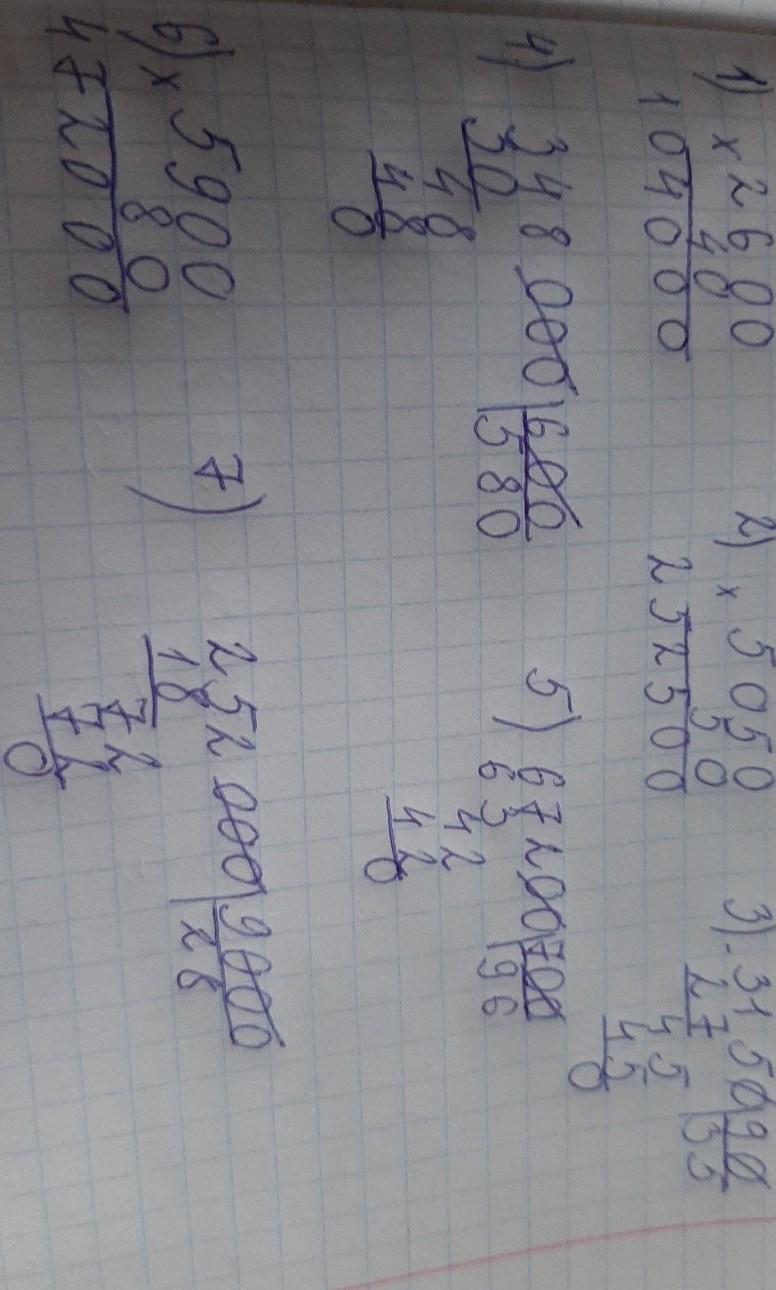 1) × 2600
40
104000
2) × 5050
50
252500
3) - 3150 | 90
27 | 35
45
45
0
4) 348000 | 600
30 | 580
48
48
0
5) 67200 | 700
63 | 96
42
42
0
6) × 5900
80
472000
7) 252000 | 9000
18 | 28
72
72
0